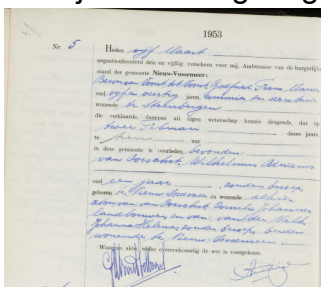 1953
Nr 5
Heden vijf Maart
negentienhonderd drie en vijftig verscheen voor mij, Ambtenaar van de burgerlijke
stand der gemeente Nieuw-Vossemeer:
oud vijf en veertig jaren,
wonende te Steenbergen
die verklaarde, daarvan uit eigen wetenschap kennis dragende, dat op
twee Februari dezes jaars
te tien uur
in deze gemeente is overleden:
van Oorschot, Wilhelmus Adrianus
oud een jaar, zonder beroep,
geboren te Nieuw-Vossemeer en wonende alhier,
zoon van van Oorschot, Cornelis Johannes
landbouwer, en van van der
Johanna Helena, zonder beroep, beiden
wonende te Nieuw-Vossemeer
Waarvan akte, welke overeenkomstig de wet is voorgelezen.